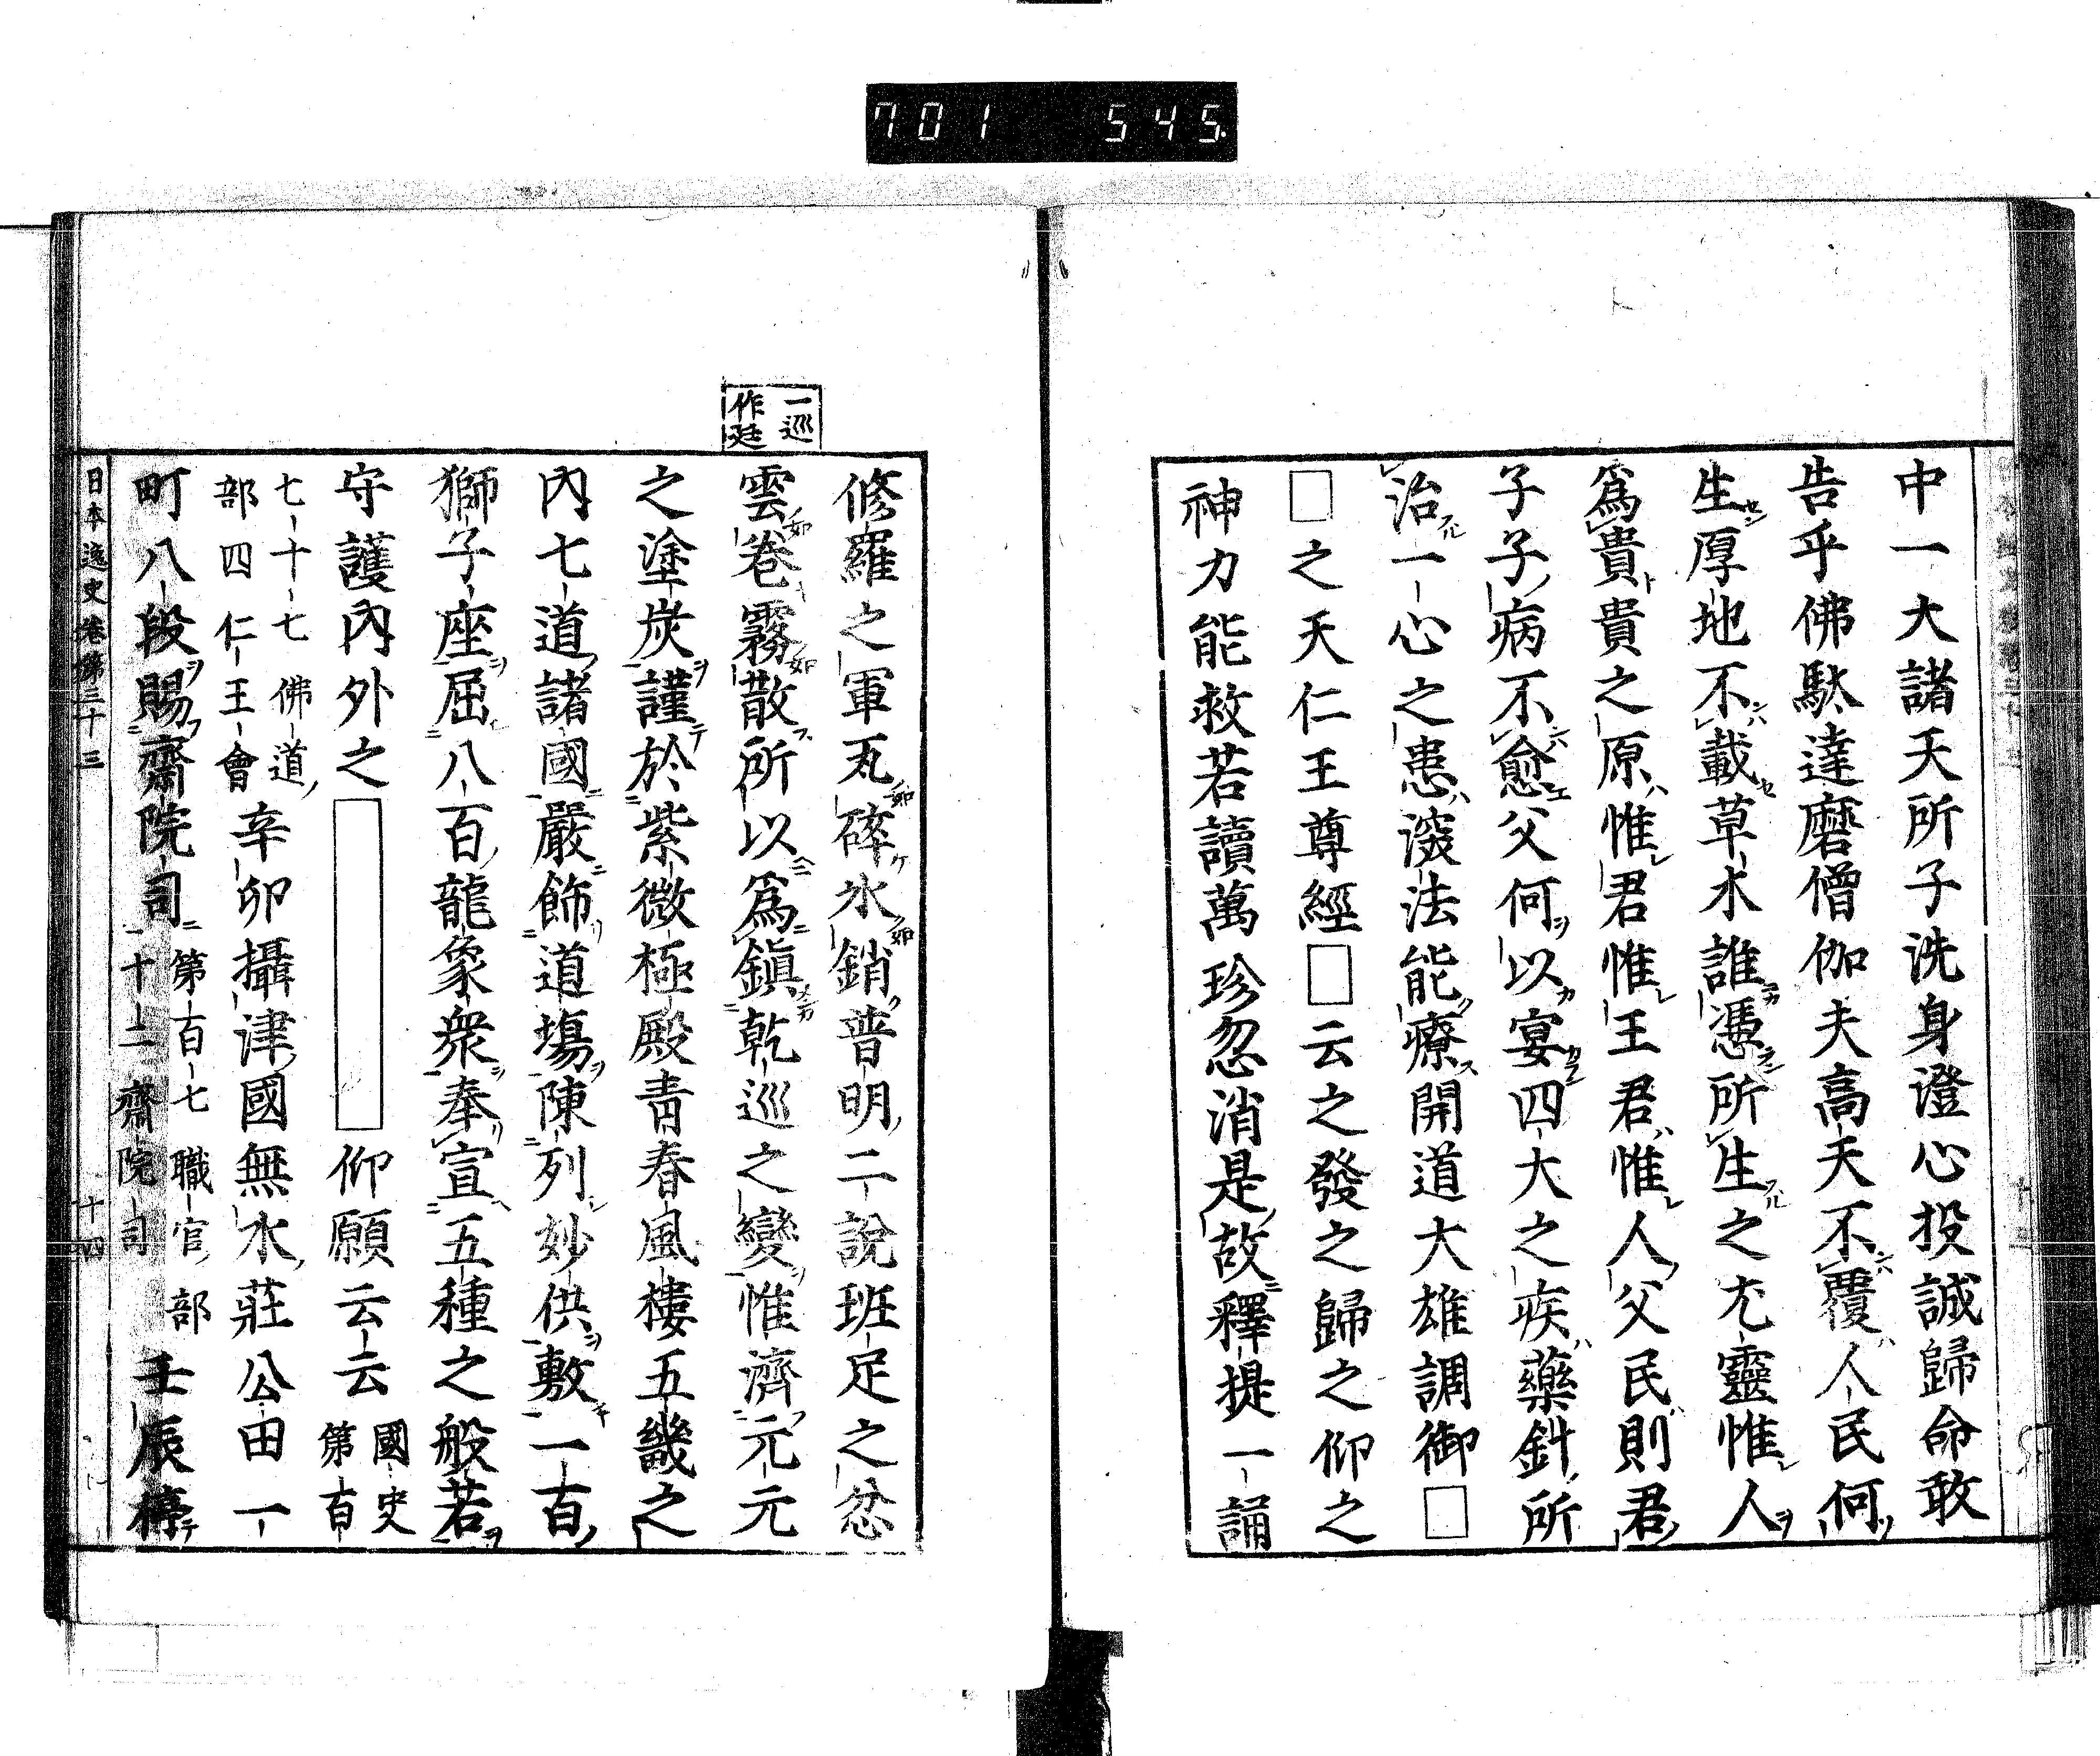 701 545
中一大諸天所子洗身澄心投誠歸命敢
告乎佛馱達磨僧伽夫高天不覆人民何
生厚地不載草木誰憑所生之尤靈惟人
爲貴貴之原惟君惟王君惟人父民則君
子子病不愈父何以宴四大之疾藥針所
治一心之患深法能療開道大雄調御□
□之天仁王尊經□云之發之歸之仰之
神力能救若讀萬珍忽消是故釋提一誦
一巡
作廷
修羅之軍瓦碎氷銷普明二說班足之忿
雲卷霧散所以爲鎭乾巡之變惟濟元元
之塗炭謹於紫微極殿靑春風樓五畿之
內七道諸國嚴飾道塲陳列妙供敷一百
獅子座屈八百龍象衆奉宣五種之般若
守護內外之 仰願云云 國史
第百
七十七佛道
部四仁王會
辛卯攝津國無水莊公田一
町八段賜齋院司 第百七職官部
十二齋院司
壬辰停
日本逸史卷第三十三 十四